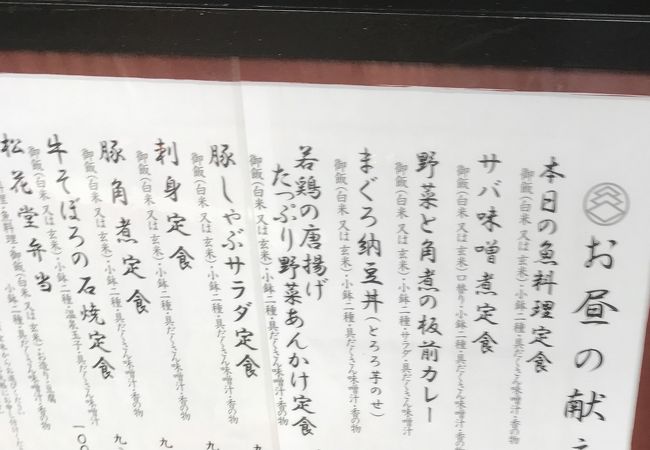 お昼の献
本日の魚料理定食
御飯(白米 又は 玄米)・小鉢二種・具だくさん味噌汁・香の物
サバ味噌煮定食
御飯(白米 又は 玄米)口替り・小鉢二種・具だくさん味噌汁・香の
野菜と角煮の板前カレー
御飯(白米 又は 玄米)・小鉢二種・サラダ・具だくさん味噌汁
まぐろ納豆丼(とろろ芋のせ)
御飯(白米 又は 玄米)・小鉢二種・具だくさん味噌汁・香の物
若鶏の唐揚げ
たっぷり野菜あんかけ定食
御飯(白米 又は 玄米)・小鉢二種・具だくさん味噌汁・香の物
豚しゃぶサラダ定食
御飯(白米 又は 玄米)・小鉢二種・具だくさん味噌汁・香の物
九
刺身定食
御飯(白米 又は 玄米)・小鉢二種・具だくさん味噌汁・香の物
九
豚角煮定食
御飯(白米 又は 玄米)・小鉢二種・具だくさん味噌汁・香の物
九
牛そぼろの石焼定食
御飯(白米 又は 玄米)・小鉢二種・温泉玉子・具だくさん味噌汁・香の物
一〇
松花堂弁当